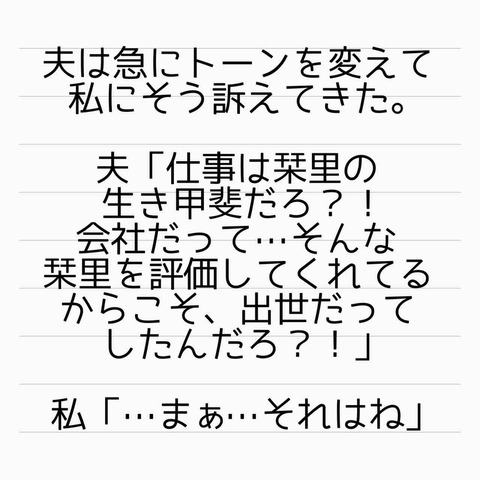 夫は急にトーンを変えて
私にそう訴えてきた。
夫「仕事は栞里の
生き甲斐だろ？！
会社だって…そんな
栞里を評価してくれてる
からこそ、出世だって
したんだろ？！」
私「…まぁ…それはね」